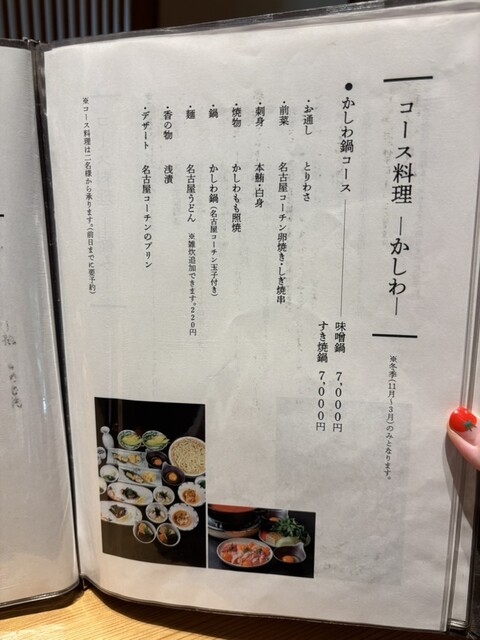 コース料理 ―かしわ―
※冬季(11月～3月)のみとなります。
●かしわ鍋コース
味噌鍋 7,000円
すき焼鍋 7,000円
・お通し とりわさ
・前菜 名古屋コーチン卵焼き・しぎ焼串
・刺身 本鮪・白身
・焼物 かしわもも照焼
・鍋 かしわ鍋(名古屋コーチン玉子付き)
・麺 名古屋うどん ※雑炊追加できます。220円
・香の物 浅漬
・デザート 名古屋コーチンのプリン
※コース料理は二名様から承ります。(前日までに要予約)